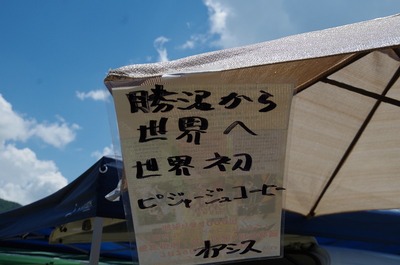 勝沼から
世界へ
世界初
ピジャージュコーヒー
オアシス